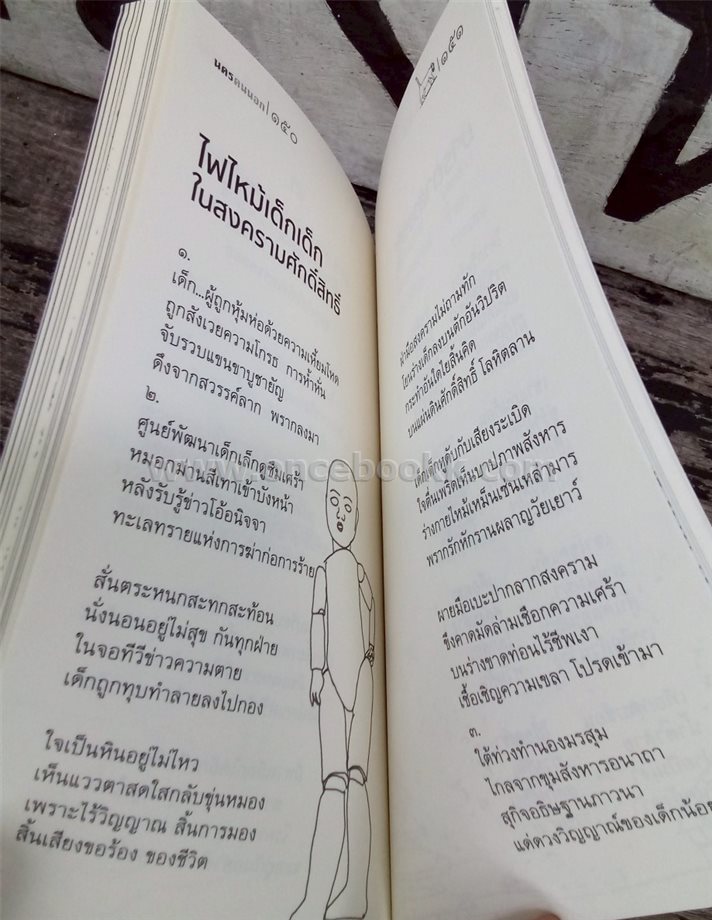 นครคนนอก | ๑๕๐
ไฟไหม้เด็กเด็ก
ในสงครามศักดิ์สิทธิ์
๑.
เด็ก...ผู้ถูกหุ้มห่อด้วยความเหี้ยมโหด
ถูกสังเวยความโกรธ การห้ำหั่น
จับรวบแขนขาบูชายัญ
ดึงจากสวรรค์ลาก พรากลงมา
๒.
ศูนย์พัฒนาเด็กเล็กดูซึมเศร้า
หมอกม่านสีเทาเข้าบังหน้า
หลังรับรู้ข่าวโอ้อนิจจา
ทะเลทรายแห่งการฆ่าก่อการร้าย
สั่นตระหนกสะทกสะท้อน
นั่งนอนอยู่ไม่สุข กันทุกฝ่าย
ในจอทีวีข่าวความตาย
เด็กถูกทุบทำลายลงไปกอง
ใจเป็นหินอยู่ไม่ไหว
เห็นแววตาสดใสกลับขุ่นหมอง
เพราะไร้วิญญาณ สิ้นการมอง
สิ้นเสียงขอร้อง ของชีวิต
| ๑๕๑
ฝ่ามือสงครามไม่ถามทัก
โยนร่างเด็กลงบนตักอันวิปริต
กระทำอันใดไยสิ้นคิด
บนแผ่นดินศักดิ์สิทธิ์ โลหิตลาน
เด็กเด็กพูดับกับเสียงระเบิด
ใจตื่นเพริดเห็นบาปภาพสังหาร
ร่างกายไหม้เหม็นเซ่นเหล่ามาร
พรากรักหักรานผลาญวัยเยาว์
ผายมือเบะปากลากสงคราม
ขึงคาดมัดล่ามเชือกความเศร้า
บนร่างขาดท่อนไร้ชีพเงา
เชื้อเชิญความเขลา โปรดเข้ามา
๓.
ใต้ท่วงทำนองมรสุม
ไกลจากขุมสังหารอนาถา
สุกิจอธิษฐานภาวนา
แด่ดวงวิญญาณ์ของเด็กน้อย
www.oncebook.com